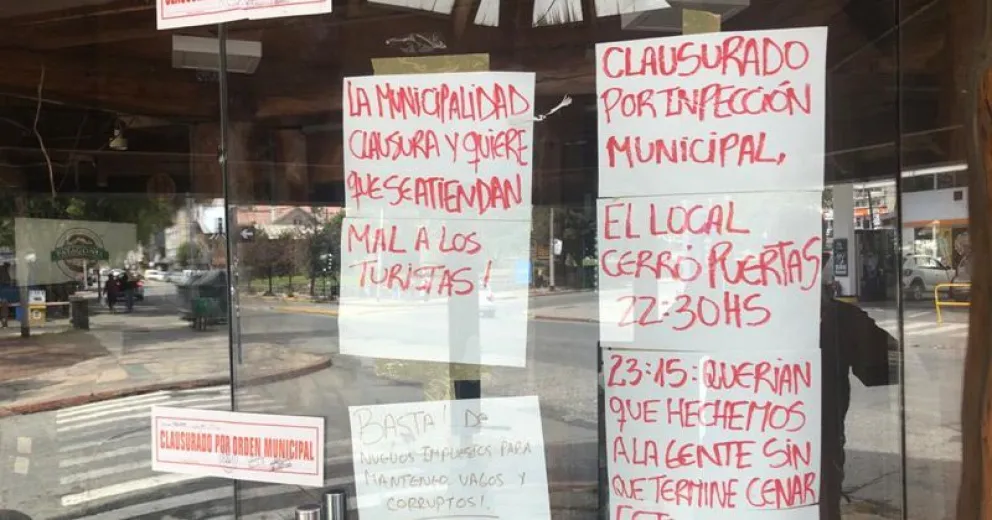 LA MUNICIPALIDAD
CLAUSURA Y QUIERE
QUE SE ATIENDAN
MAL A LOS
TURISTAS!
CLAUSURADO
POR INPECCIÓN
MUNICIPAL,
EL LOCAL
CERRÓ PUERTAS
22:30HS
23:15: QUERIAN
QUE HECHEMOS
A LA GENTE SIN
QUE TERMINE CENAR
BASTA! DE
NUEVOS IMPUESTOS PARA
MANTENER VAGOS Y
CORRUPTOS!
CLAUSURADO POR ORDEN MUNICIPAL